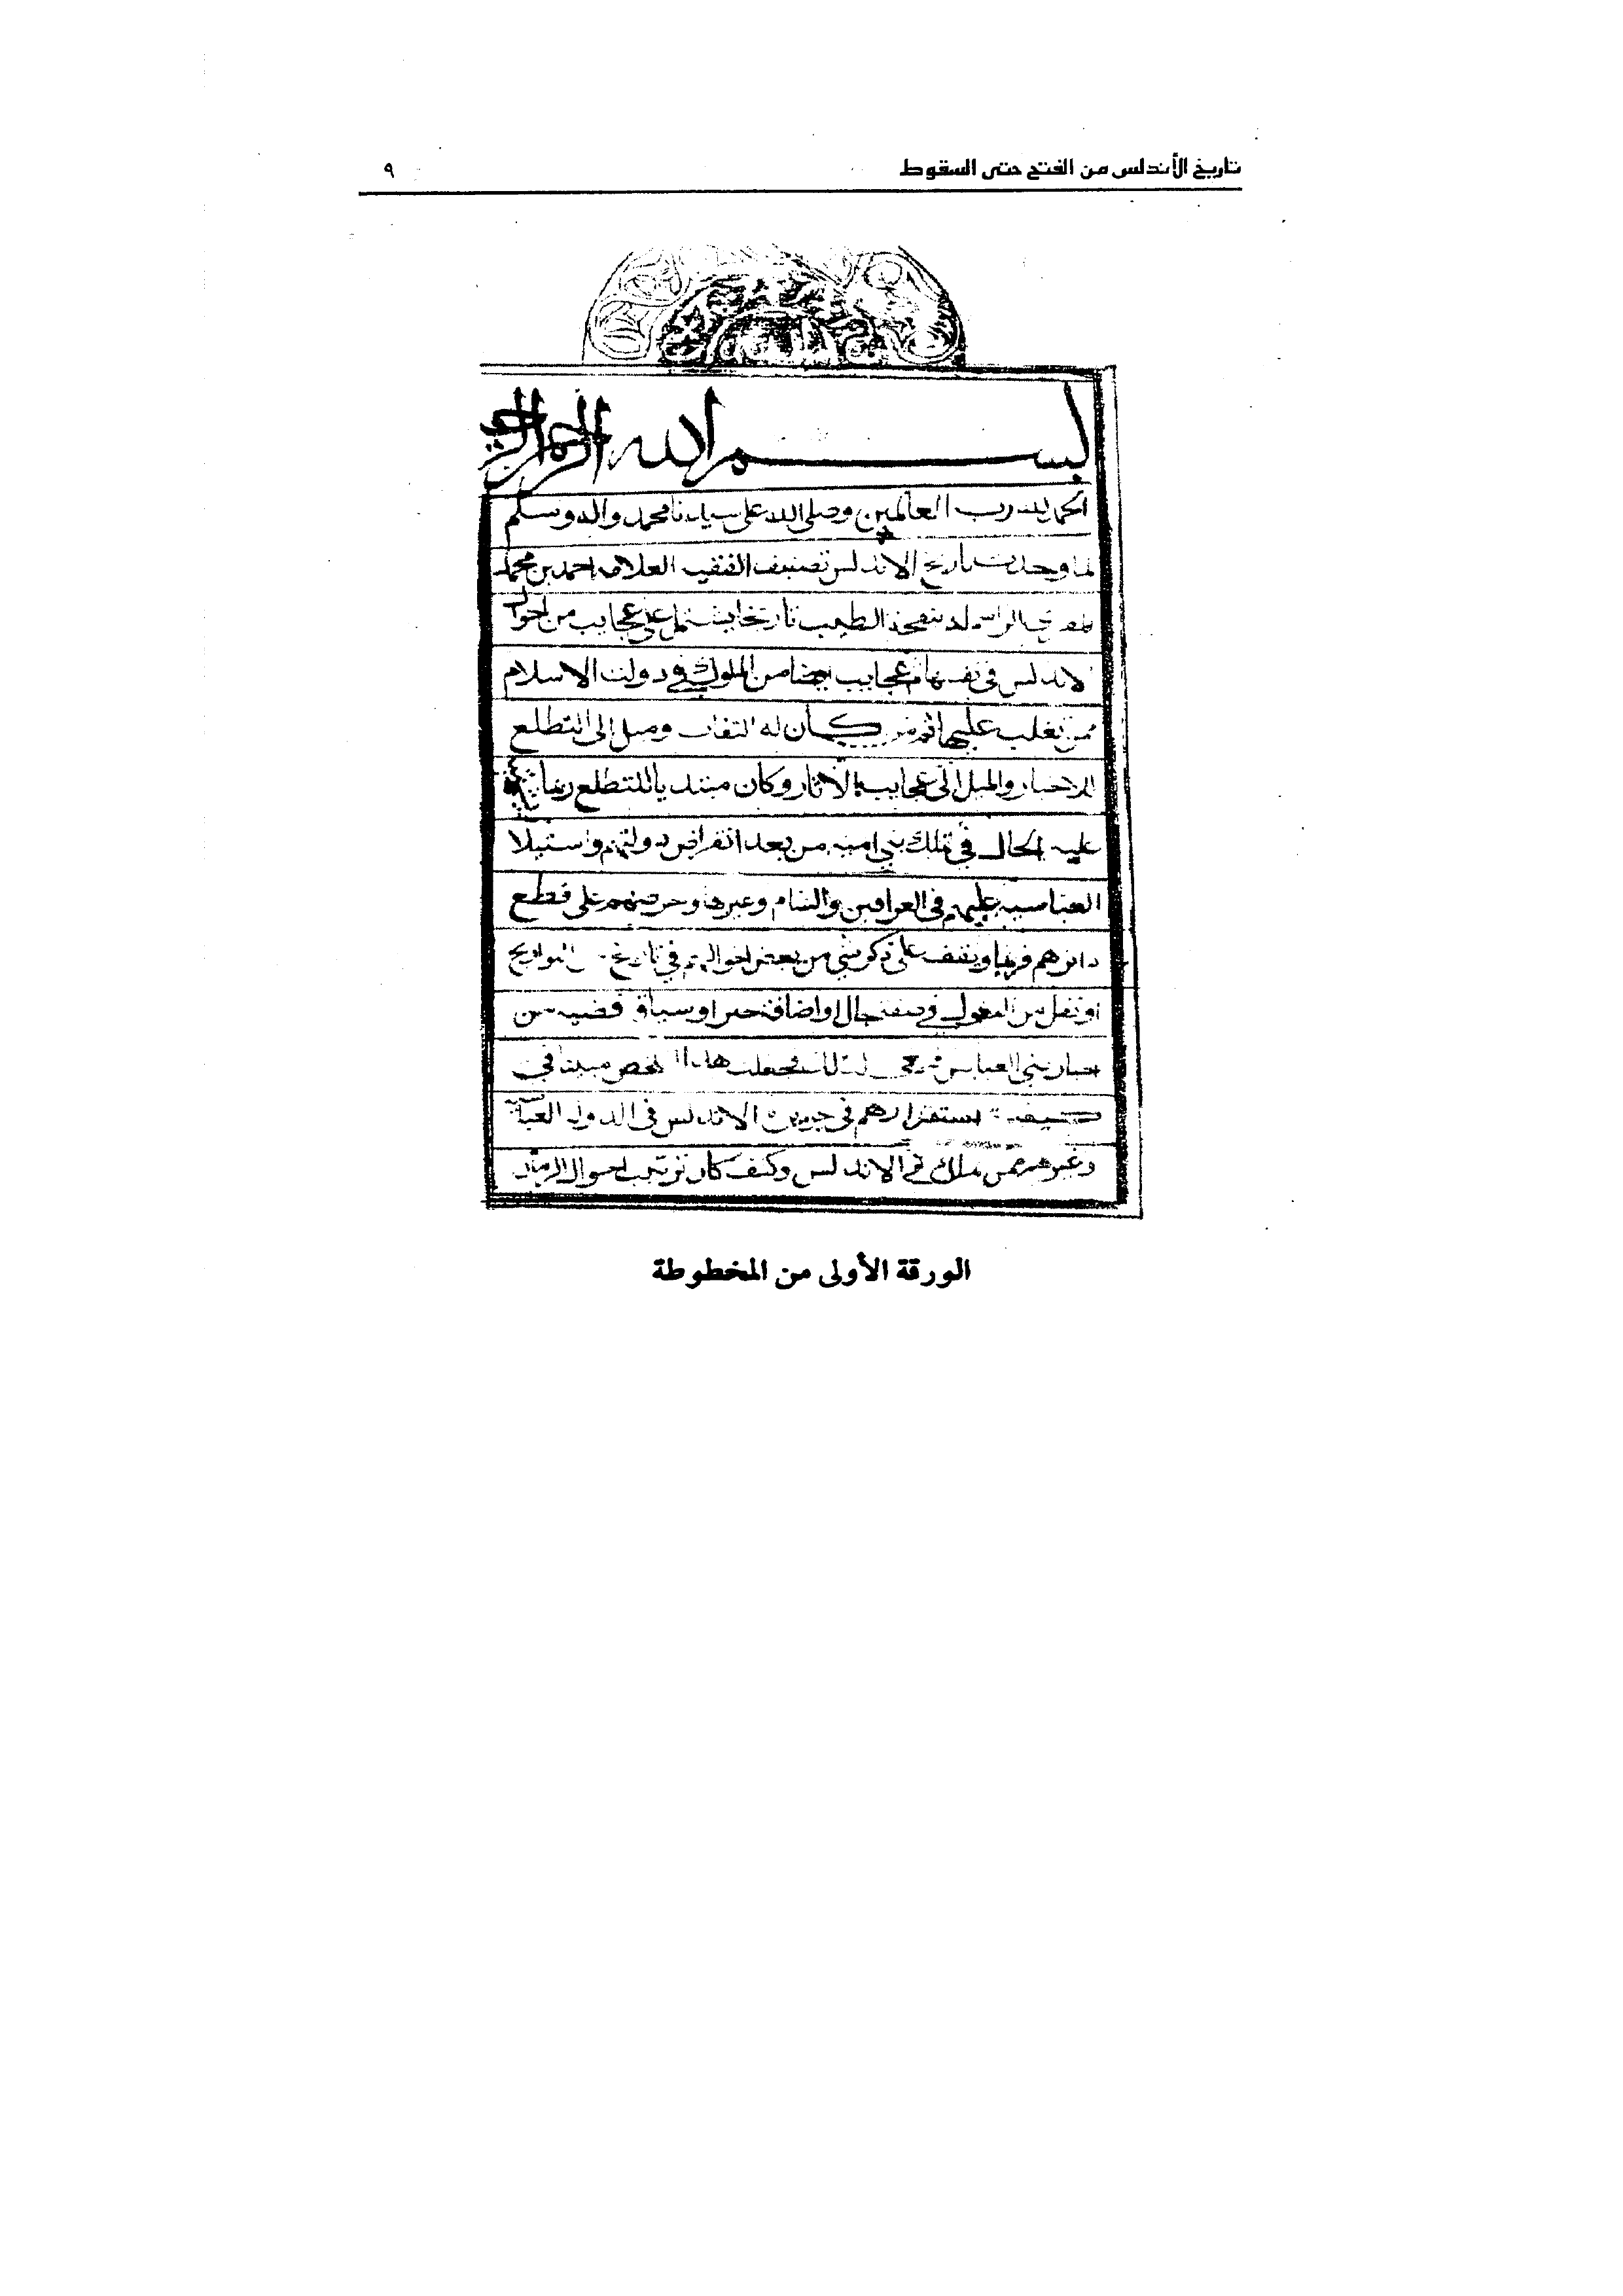 تاريخ الأندلس من الفتح حتى السقوط
٩
بسم الله الرحمن الرحيم
الحمد لله رب العالمين وصلى الله على سيدنا محمد واله وسلم
لما وجدت تاريخ الاندلس تصنيف الفقيه العلامه احمد بن محمد
الطيب تاريخا يشتمل على عجايب من احوال
الاندلس في نفسها وعجايب من الملوك في دولت الاسلام
ممن تغلب عليها كان له التفات وميل الى التطلع
للاخبار والميل الى عجايب الاثار وكان مبتديا للتطلع
عليه الحال في تلك بني اميه من بعد انقراض دولتهم واستيلا
العباسيه عليهم في العراقين والشام وغيرها وحرصهم على قطع
دابرهم فربما يقف على ذكر شي من بعض احوالهم في تاريخ من التواريخ
او نقل من في صفة حال او اضافة خبر او سياق قضيه من
اخبار بني العباس فجعلت هذا مبينا في
كيفية استقرارهم في جزيرة الاندلس في الدولة
وغيرهم ممن ملك في الاندلس وكيف كان ترتيب احوال الزمان
الورقة الأولى من المخطوطة